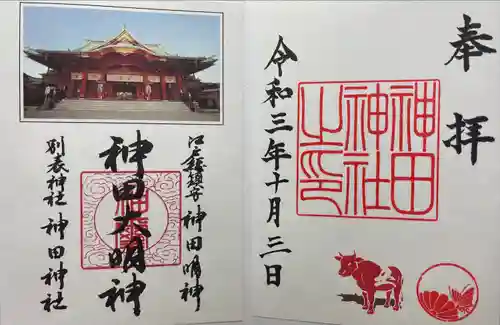 奉拝
神田
神社
之印
令和三年十月三日
江戸総鎮守 神田明神
神田大明神
別表神社 神田神社